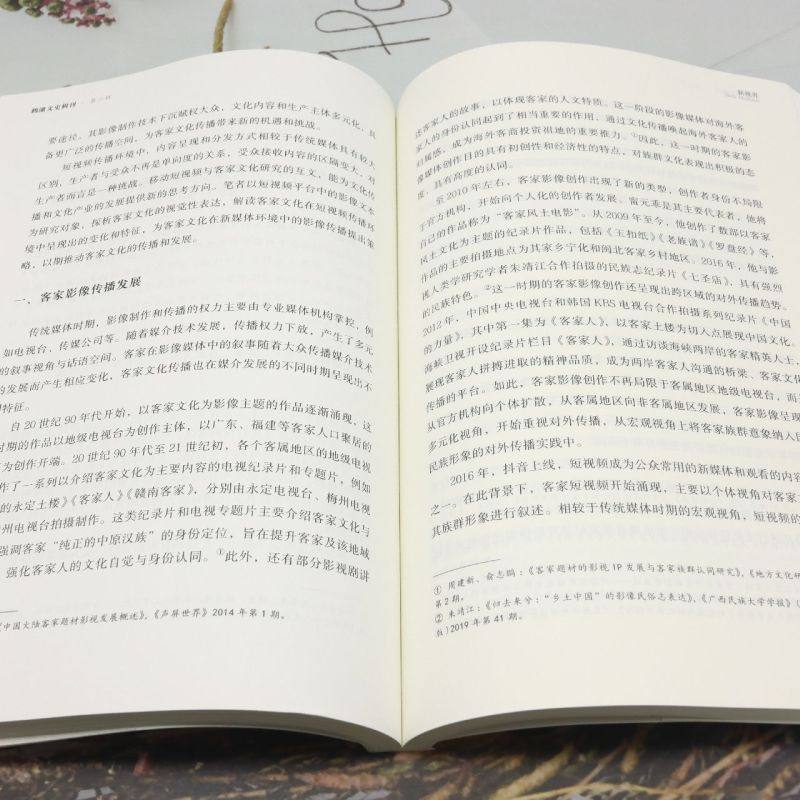 文史辑刊
要途径。其影像制作技术下沉赋权大众，文化内容和生产主体多元化，具
备更广泛的传播空间，为客家文化传播带来新的机遇和挑战。
短视频传播环境中，内容呈现和分发方式相较于传统媒体具有较大
区别，生产者与受众不再是单向度的关系，受众接收内容的区隔变大，对
生产者而言是一种挑战。移动短视频与客家文化研究的互文，能为文化传
播和文化产业的发展提供新的思考方向。笔者以短视频平台中的影像文本
为研究对象，探析客家文化的视觉性表达，解读客家文化在短视频传播环
境中呈现出的变化和特征，为客家文化在新媒体环境中的影像传播提出策
略，以期推动客家文化的传播和发展。
一、客家影像传播发展
传统媒体时期，影像制作和传播的权力主要由专业媒体机构掌控，例
如电视台、传媒公司等。随着媒介技术发展，传播权力下放，产生了多元
的叙事视角与话语空间。客家在影像媒体中的叙事随着大众传播媒介技术
的发展而产生相应变化，客家文化传播也在媒介发展的不同时期呈现出不
特征。
自20世纪90年代开始，以客家文化为影像主题的作品逐渐涌现，这
时期的作品以地级电视台为创作主体，以广东、福建等客家人口聚居的
为创作开端。20世纪90年代至21世纪初，各个客属地区的地级电视
作了一系列以介绍客家文化为主要内容的电视纪录片和专题片，例如
的永定土楼》《客家人》《赣南客家》，分别由永定电视台、梅州电视
州电视台拍摄制作。这类纪录片和电视专题片主要介绍客家文化与
强调客家“纯正的中原汉族”的身份定位，旨在提升客家及该地域
，强化客家人的文化自觉与身份认同。①此外，还有部分影视剧讲
中国大陆客家题材影视发展概述》，《声屏世界》2014年第1期。
新视界
述客家人的故事，以体现客家的人文特质。这一阶段的影像媒体对海外客
家人的身份认同起到了相当重要的作用，通过文化传播唤起海外客家人的
归属感，成为海外客商投资祖地的重要推力。①因此，这一时期的客家影
像媒体创作目的具有初创性和经济性的特点，对族群文化表现出积极的态
度，具有高度的认同。
至2010年左右，客家影像创作出现了新的类型，创作者身份不局限
于官方机构，开始向个人化的创作者发展。甯元乖是其主要代表者，他将
自己的作品称为“客家风土电影”。从2009年至今，他创作了数部以客家
风土文化为主题的纪录片作品，包括《玉扣纸》《老族谱》《罗盘经》等，
作品的主要拍摄地点为其家乡宁化和闽北客家乡村地区。2016年，他与影
视人类学研究学者朱靖江合作拍摄的民族志纪录片《七圣庙》，具有强烈
的民族特色。②这一时期的客家影像创作还呈现出跨区域的对外传播趋势。
2012年，中国中央电视台和韩国KBS电视台合作拍摄系列纪录片《中国
的力量》，其中第一集为《客家人》，以客家土楼为切入点展现中国文化。
海峡卫视开设纪录片栏目《客家人》，通过访谈海峡两岸的客家精英人士，
展现客家人拼搏进取的精神品质，成为两岸客家人沟通的桥梁、客家文化
传播的平台。如此，客家影像创作不再局限于客属地区地级电视台，而
从官方机构向个体扩散，从客属地区向非客属地区发展，客家影像呈现
多元化视角，开始重视对外传播，从宏观视角上将客家族群意象纳入
民族形象的对外传播实践中。
2016年，抖音上线，短视频成为公众常用的新媒体和观看的内容
之一。在此背景下，客家短视频开始涌现，主要以个体视角对客家
其族群形象进行叙述。相较于传统媒体时期的宏观视角，短视频的
① 周建新、俞志鹏：《客家题材的影视IP发展与客家族群认同研究》，《地方文化研
第2期。
② 朱靖江：《归去来兮：“乡土中国”的影像民俗志表达》，《广西民族大学学报》（
版）2019年第41期。